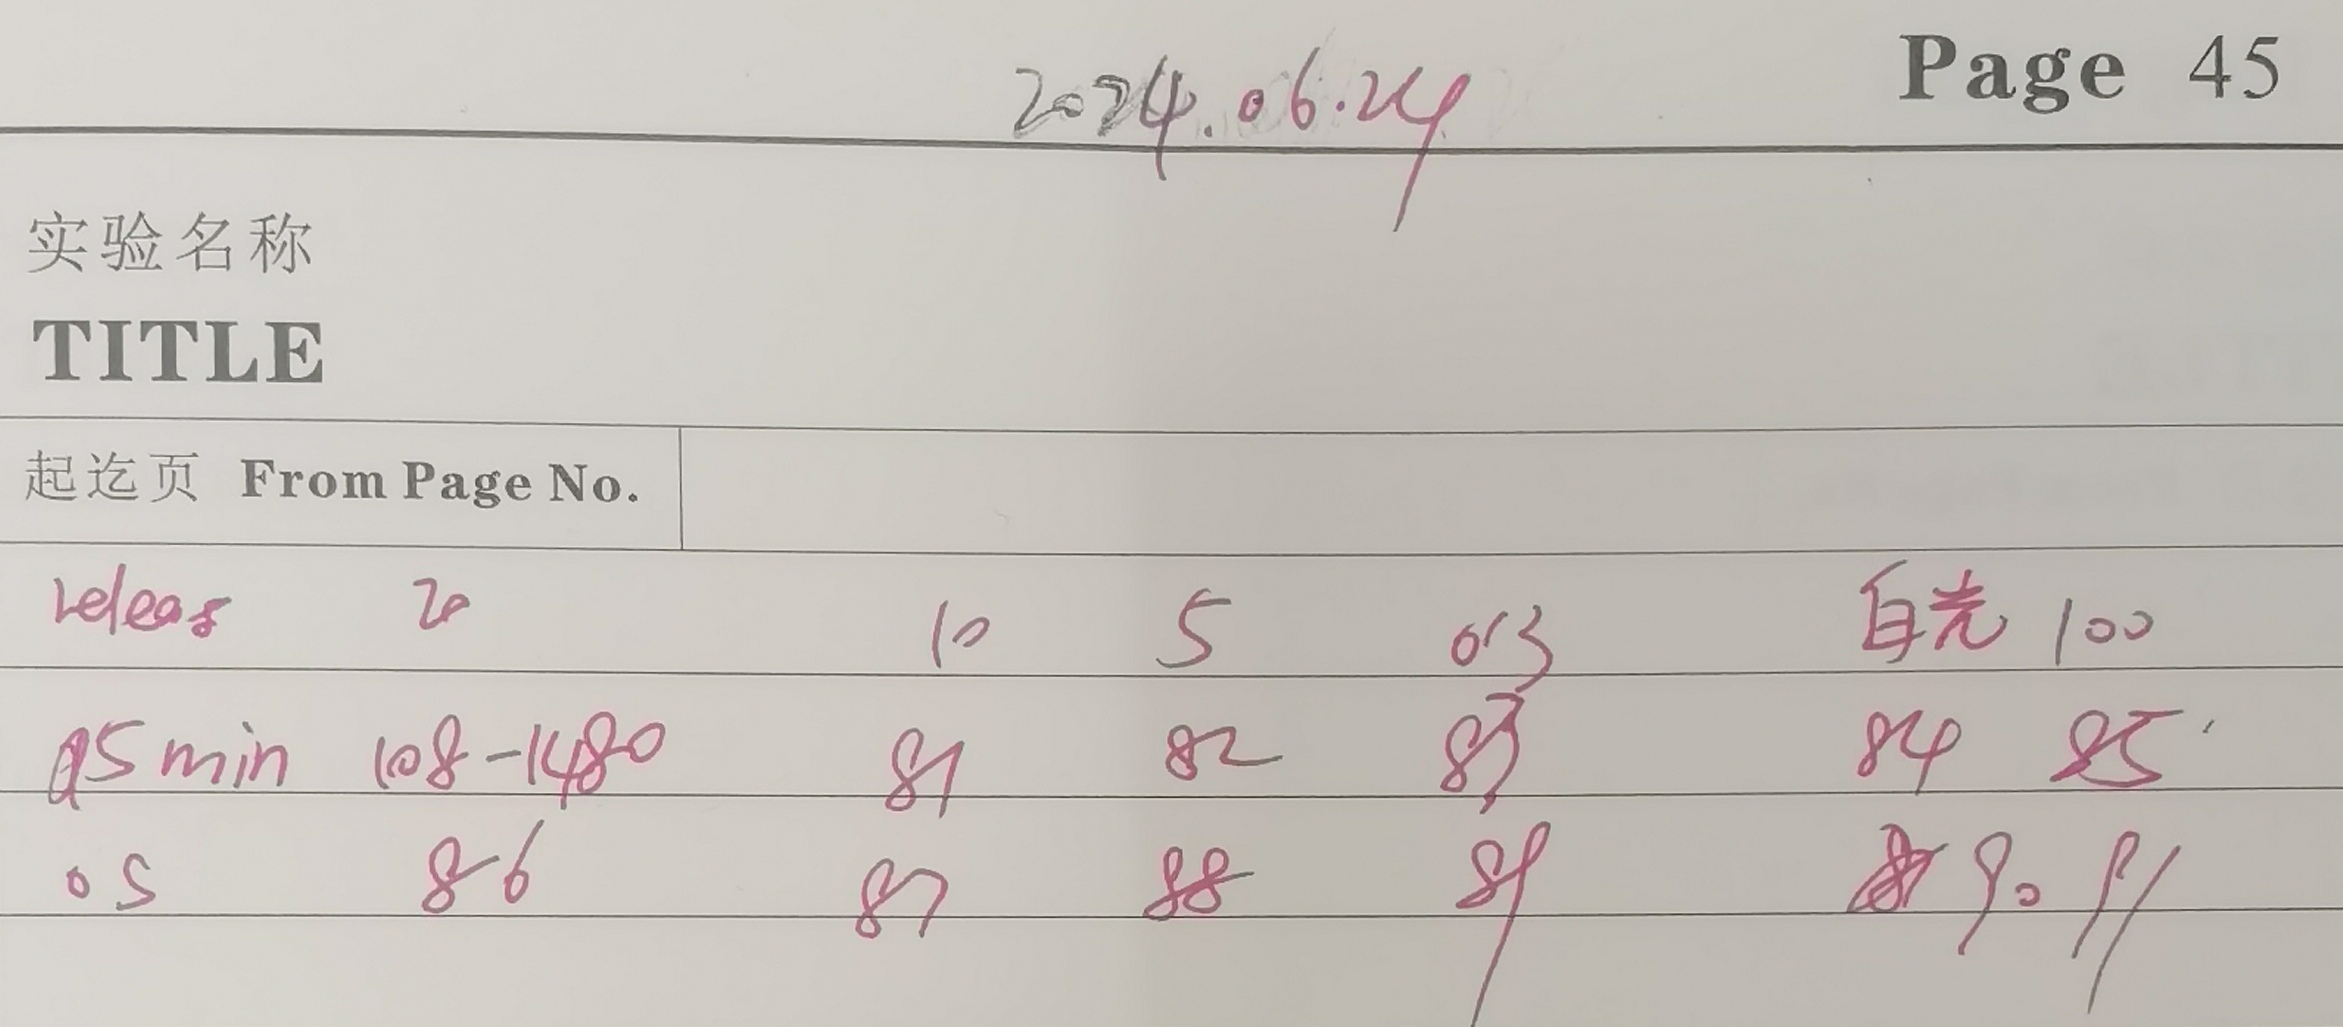 Page 45
2024.06.24
实验名称
TITLE
起迄页 From Page No.
releas 20 10 5 0.3 白光 100
15min 108-1480 81 82 83 84 85
0S 86 87 88 89 90 91